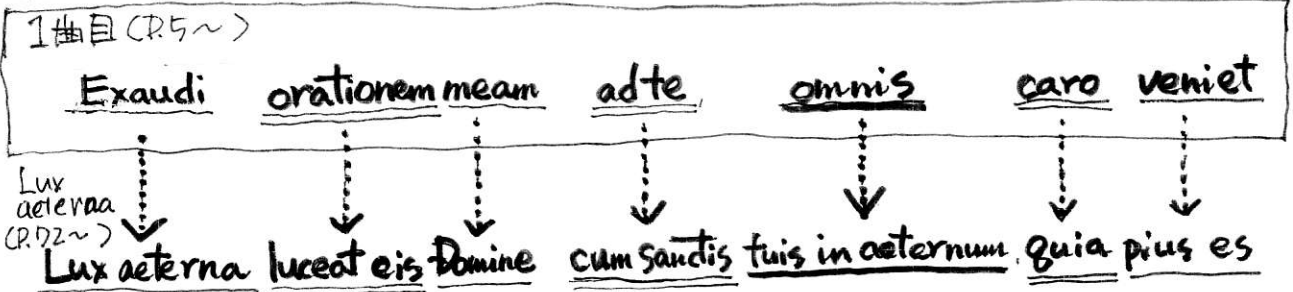 1曲目(P.5〜)
Exaudi orationem meam ad te omnis caro veniet
Lux
aeterna
(P.72〜)
Lux aeterna luceat eis Domine cum sanctis tuis in aeternum. quia pius es